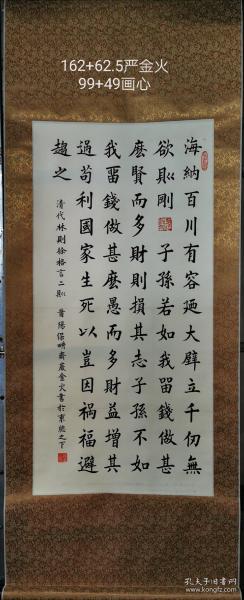 162+62.5严金火
99+49画心
海納百川有容廼大壁立千仞無
欲則剛 子孫若如我㽞錢做甚
麽賢而多財則損其志子孫不如
我㽞錢做甚麽愚而多財益增其
過苟利國家生死以豈因禍福避
趨之
清代林則徐格言二則 晋陽 齋嚴金火書於東 之下
孔夫子旧书网